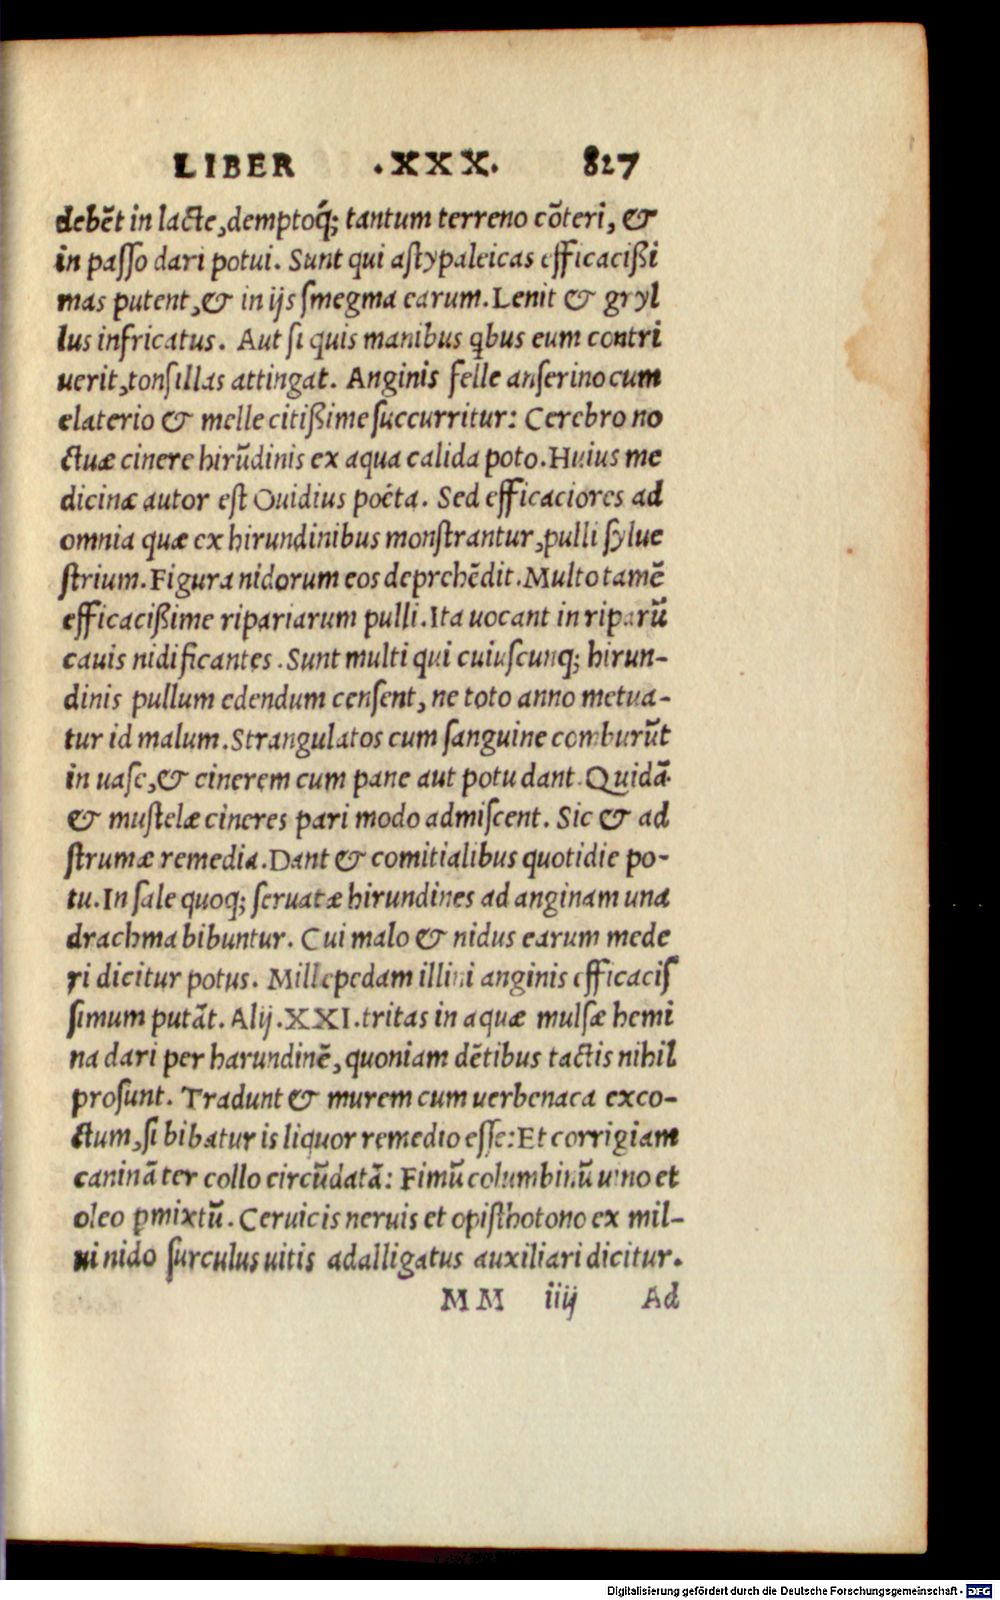 LIBER .XXX. 827
debẽt in lacte, demptoq́; tantum terreno cõteri, &
in passo dari potui. Sunt qui astypaleicas efficacißi
mas putent, & in ijs smegma earum. Lenit & gryl
lus infricatus. Aut si quis manibus q̃bus eum contri
uerit, tonsillas attingat. Anginis felle anserino cum
elaterio & melle citißime succurritur: Cerebro no
ctuæ cinere hirũdinis ex aqua calida poto. Huius me
dicinæ autor est Ouidius poëta. Sed efficaciores ad
omnia quæ ex hirundinibus monstrantur, pulli sylue
strium. Figura nidorum eos deprehẽdit. Multo tamẽ
efficacißime ripariarum pulli. Ita uocant in riparũ
cauis nidificantes. Sunt multi qui cuiuscunq; hirun-
dinis pullum edendum censent, ne toto anno metua-
tur id malum. Strangulatos cum sanguine comburũt
in uase, & cinerem cum pane aut potu dant. Quidã
& mustelæ cineres pari modo admiscent. Sic & ad
strumæ remedia. Dant & comitialibus quotidie po-
tu. In sale quoq; seruatæ hirundines ad anginam una
drachma bibuntur. Cui malo & nidus earum mede
ri dicitur potus. Millepedam illini anginis efficacis
simum putãt. Alij .XXI. tritas in aquæ mulsæ hemi
na dari per harundinẽ, quoniam dẽtibus tactis nihil
prosunt. Tradunt & murem cum uerbenaca exco-
ctum, si bibatur is liquor remedio esse: Et corrigiam
caninã ter collo circũdatã: Fimũ columbinũ uino et
oleo ꝑmixtũ. Ceruicis neruis et opisthotono ex mil-
ui nido surculus uitis adalligatus auxiliari dicitur.
MM iiij Ad
Digitalisierung gefördert durch die Deutsche Forschungsgemeinschaft - DFG